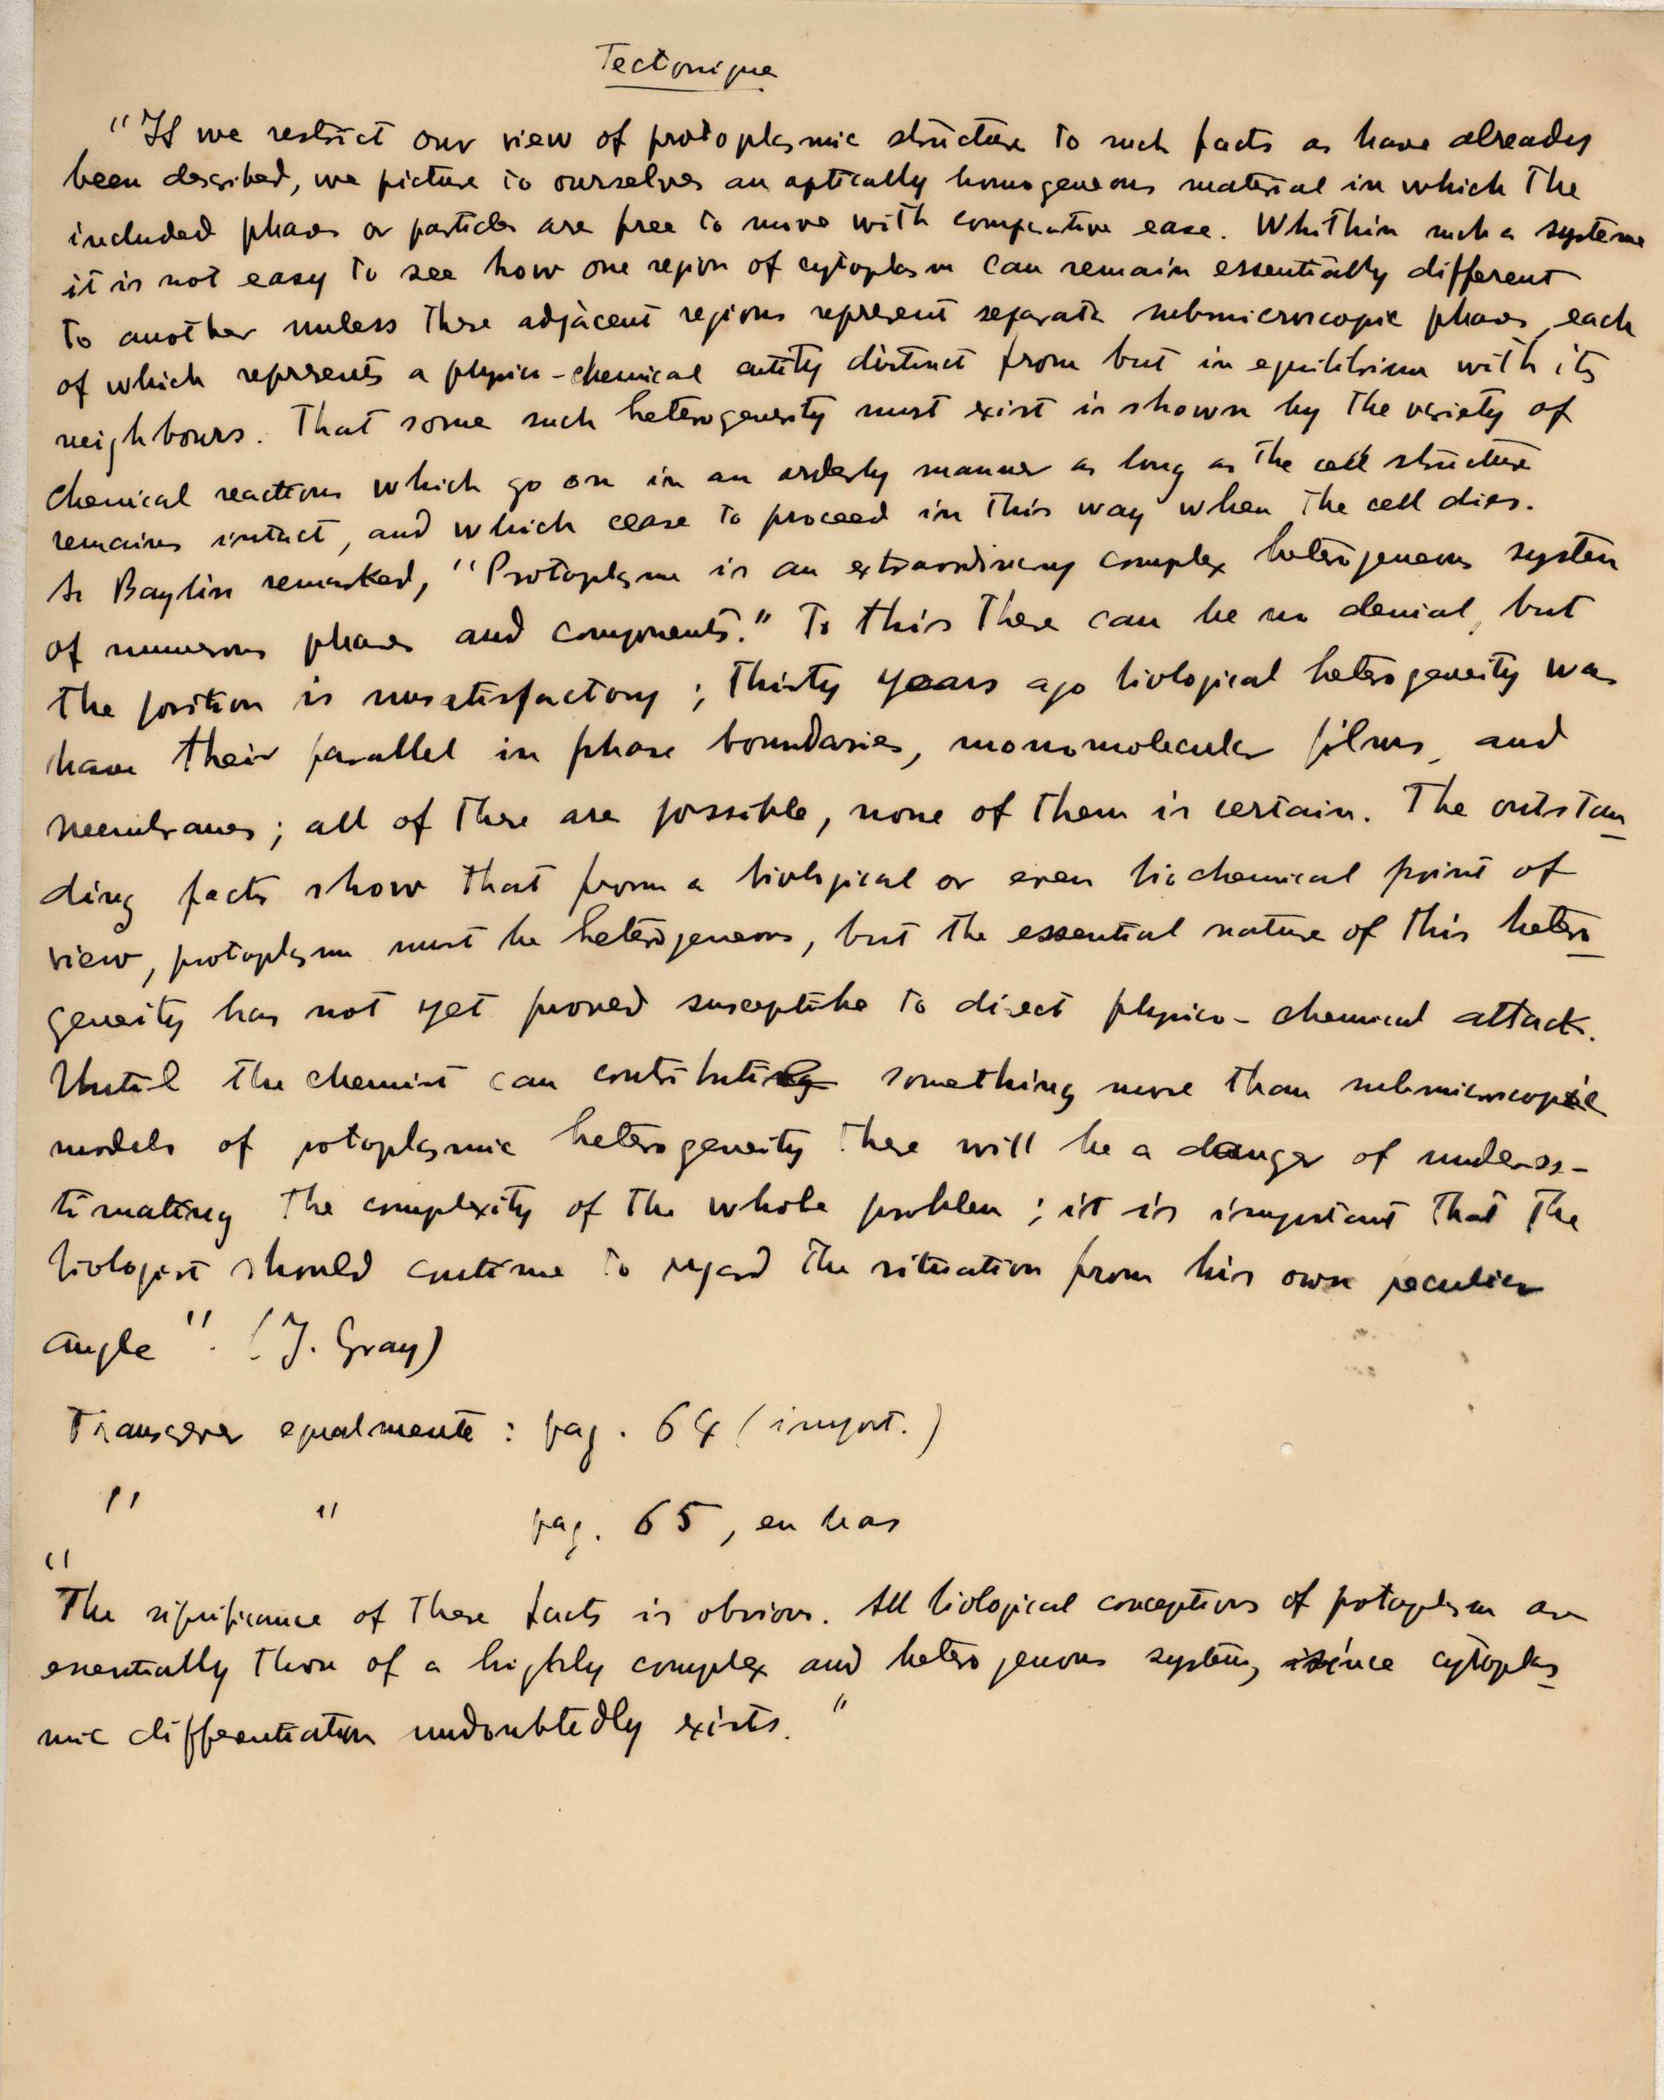 Tectonique
"If we restrict our view of protoplasmic structure to such facts as have already
been described, we picture to ourselves an optically homogeneous material in which the
included phases or particles are free to move with comparative ease. Whithin such a systeme
it is not easy to see how one region of cytoplasm can remain essentially different
to another unless these adjacent regions represent separate submicroscopic phases, each
of which represents a physico-chemical entity distinct from but in equilibrium with its
neighbours. That some such heterogeneity must exist is shown by the variety of
chemical reactions which go on in an orderly manner as long as the cell structure
remains intact, and which cease to proceed in this way when the cell dies.
As Baylin remarked, "Protoplasm is an extraordinary complex heterogeneous system
of numerous phases and components." To this there can be no denial, but
the position is unsatisfactory; thirty years ago biological heterogeneity was
have their parallel in phase boundaries, monomolecular films, and
membranes; all of these are possible, none of them is certain. The outstan
ding facts show that from a biological or even biochemical point of
view, protoplasm must be heterogeneous, but the essential nature of this hetero
geneity has not yet proved susceptibe to direct physico-chemical attack.
Until the chemist can contribute something more than submicroscopic
models of potoplasmic heterogeneity there will be a danger of underes-
timating the complexity of the whole problem; it is important that the
biologist should continue to regard the situation from his own peculier
angle". (J. Gray)
Transcrever egualmente: pag. 64 (import.)
" " pag. 65, en bas
"The significance of these facts is obvious. All biological conceptions of potoplasm are
essentially those of a highly complex and heterogenous system, since cytoplas
mic differentiation undoubtedly exists."